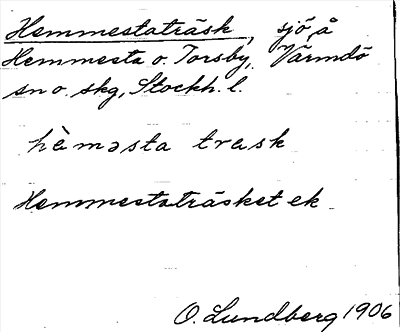 Hemmestaträsk, sjö å
Hemmesta o. Torsby, Värmdö
sn o. skg, Stockh. l.
hèməsta trask
Hemmestaträsket ek
O. Lundberg 1906